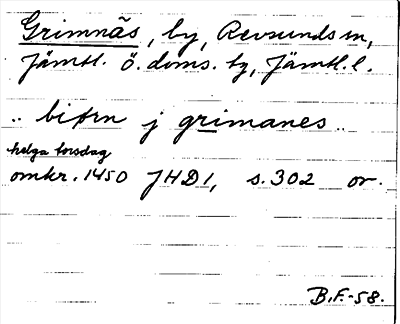 Grimnäs, by, Revsunds sn,
Jämtl. ö. doms. tg, Jämtl. l.
.. biørn j grimanes ..
helga torsdag
omkr. 1450 JHD1, s. 302 or.
B.F.-58.